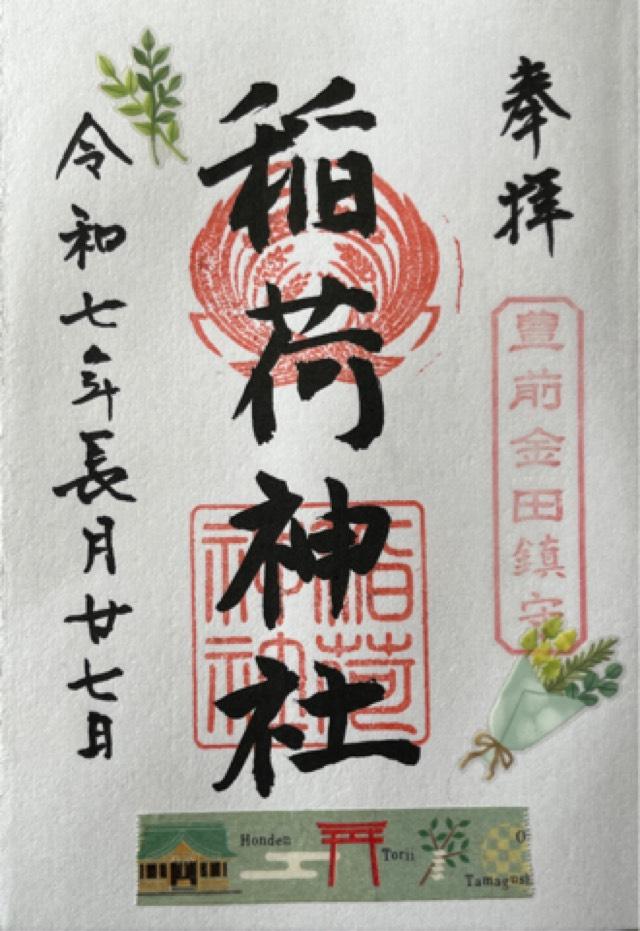 奉拝
豊前金田鎮守
稲荷神社
稲荷
神社
令和七年長月廿七日
Honden
Torii
Tamagush
O-